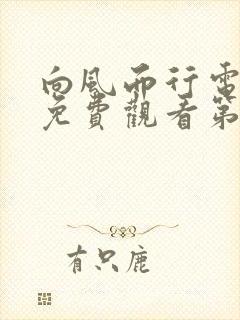 向風而行電
免費觀看第
有只鹿